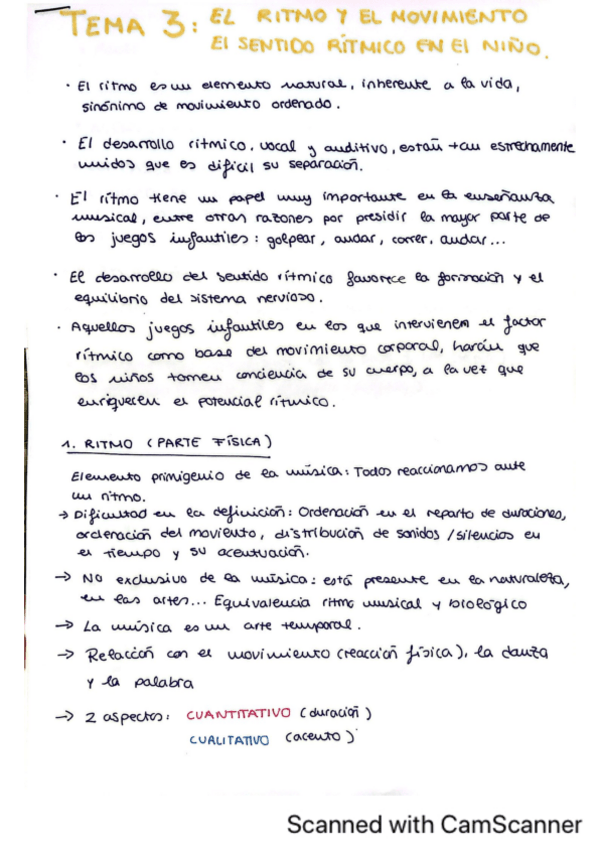 TEMA 3: EL RITMO Y EL MOVIMIENTO
El SENTIDO RÍTMICO EN El NIÑO.
· El ritmo es un elemento natural, inherente a la vida,
sinónimo de movimiento ordenado.
· El desarrollo rítmico, vocal y auditivo, están tan estrechamente
unidos que es difícil su separación.
· El ritmo tiene un papel muy importante en la enseñanza
musical, entre otras razones por presidir la mayor parte de
los juegos infantiles: golpear, andar, correr, andar...
· El desarrollo del sentido rítmico favorece la formación y el
equilibrio del sistema nervioso.
· Aquellos juegos infantiles en los que intervienen el factor
rítmico como base del movimiento corporal, harán que
los niños tomen conciencia de su cuerpo, a la vez que
enriquecen el potencial rítmico.
1. RITMO (PARTE FÍSICA)
Elemento primigenio de la música: Todos reaccionamos ante
un ritmo.
→ Dificultad en la definición: Ordenación en el reparto de duraciones,
ordenación del moviento, distribución de sonidos/silencios en
el tiempo y su acentuación.
→ No exclusivo de la música: está presente en la naturaleza,
en las artes... Equivalencia ritmo musical y biológico
→ La música es un arte temporal.
→ Relación con el movimiento (reacción física), la danza
y la palabra
→ 2 aspectos: CUANTITATIVO (duración)
CUALITATIVO (acento)
Scanned with CamScanner